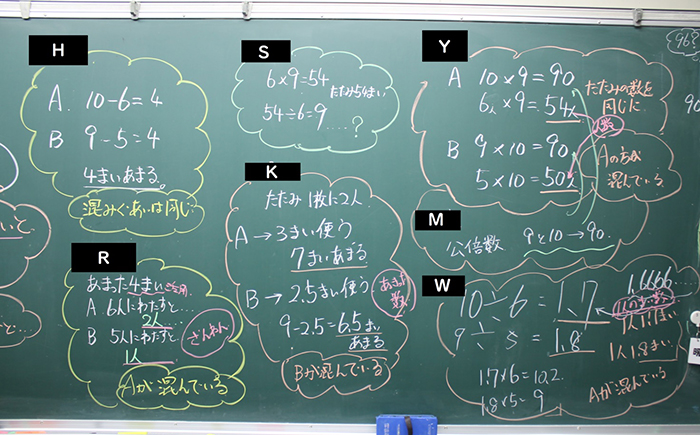 H
A. 10-6=4
B 9-5=4
4まいあまる。
混みぐあいは同じ
S
6×9=54
たたみ54まい
54÷6=9
……?
Y
A 10×9=90
6人×9=54人
B 9×10=90
5×10=50人
たたみの数を
同じに
人数
Aのちが
混んでいる
K
たたみ1枚に2人
A→3まい使う
7まいあまる
B→2.5まい使う
9-2.5=6.5まい
あまる
あまった
数
Bが混んでいる
M
公倍数 9と10→90.
R
あまった4まい
A 6人にわたすと…
2人
B 5人にわたすと…
1人
ざんねん
Aが混んでいる
W
10÷6=1.7
1.6666…
9÷5=1.8
1人1.8まい
1.7×6=10.2
1.8×5=9
Aが混んでいる
96